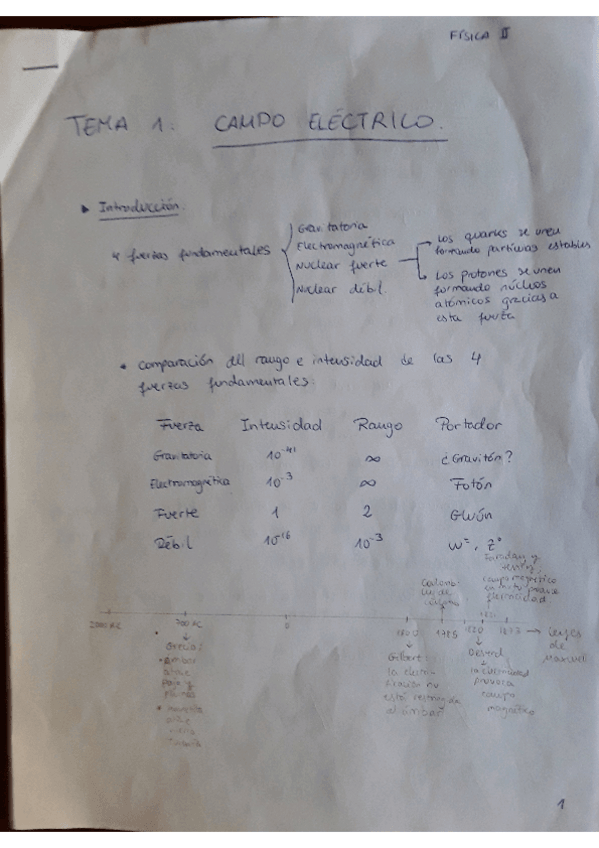 FÍSICA II
TEMA 1. CAMPO ELÉCTRICO.
Introducción.
4 fuerzas fundamentales
Gravitatoria
Electromagnética
Nuclear fuerte
Nuclear débil.
Los quarks se unen
formando partículas estables
Los protones se unen
formando núcleos
atómicos gracias a
esta fuerza
• Comparación del rango e intensidad de las 4
fuerzas fundamentales:
Fuerza Intensidad Rango Portador
Gravitatoria 10⁻⁴¹ ∞ ¿Gravitón?
Electromagnética 10⁻³ ∞ Fotón
Fuerte 1 2 Gluón
Débil 10⁻¹⁶ 10⁻³ W⁼, Z⁰
Faraday y
campo magnético
electricidad
Ley de
2000 A.C. 700 A.C. 0 1600 1785 1820 1873 → Leyes
de
Grecia:
• ámbar
atrae
paja y
plumas
• Magnetita
atrae
hierro
Gilbert:
la electri-
zación no
está restringida
al ámbar
la electricidad
provoca
campo
magnético
1